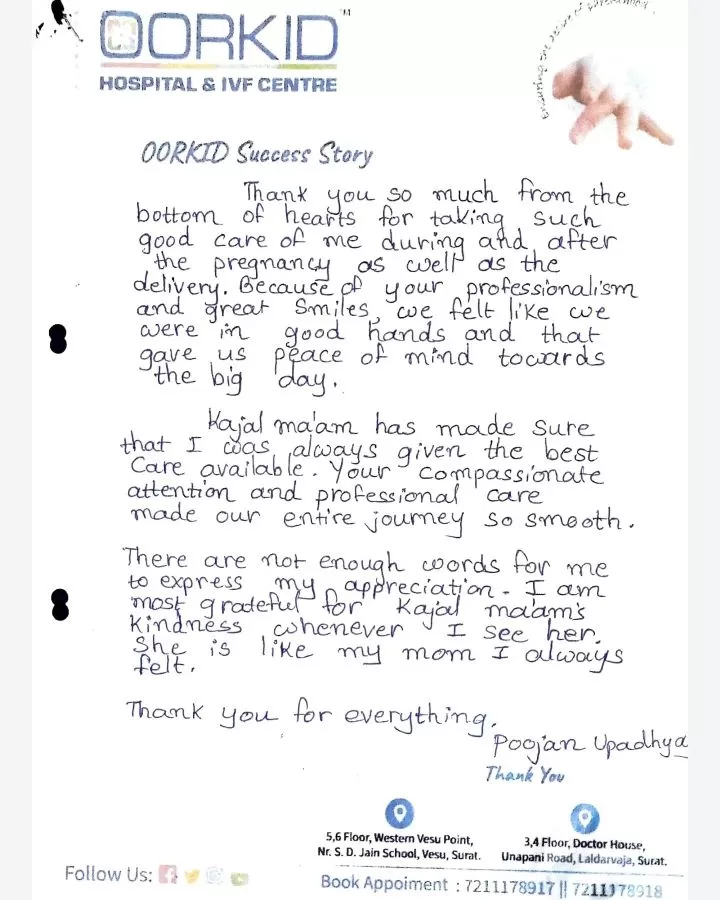 OORKID™
HOSPITAL & IVF CENTRE
OORKID Success Story
Thank you so much from the
bottom of hearts for taking such
good care of me during and after
the pregnancy as well as the
delivery. Because of your professionalism
and great Smiles, we felt like we
were in good hands and that
gave us peace of mind towards
the big day.
Kajal ma'am has made sure
that I was always given the best
Care available. Your compassionate
attention and professional care
made our entire journey so smooth.
There are not enough words for me
to express my appreciation. I am
most grateful for Kajal ma'am's
Kindness whenever I see her.
She is like my mom I always
felt.
Thank you for everything.
Poojan Upadhya
Thank You
5,6 Floor, Western Vesu Point,
Nr. S. D. Jain School, Vesu, Surat.
3,4 Floor, Doctor House,
Unapani Road, Laldarvaja, Surat.
Follow Us:
Book Appoiment : 7211178917 || 7211178918